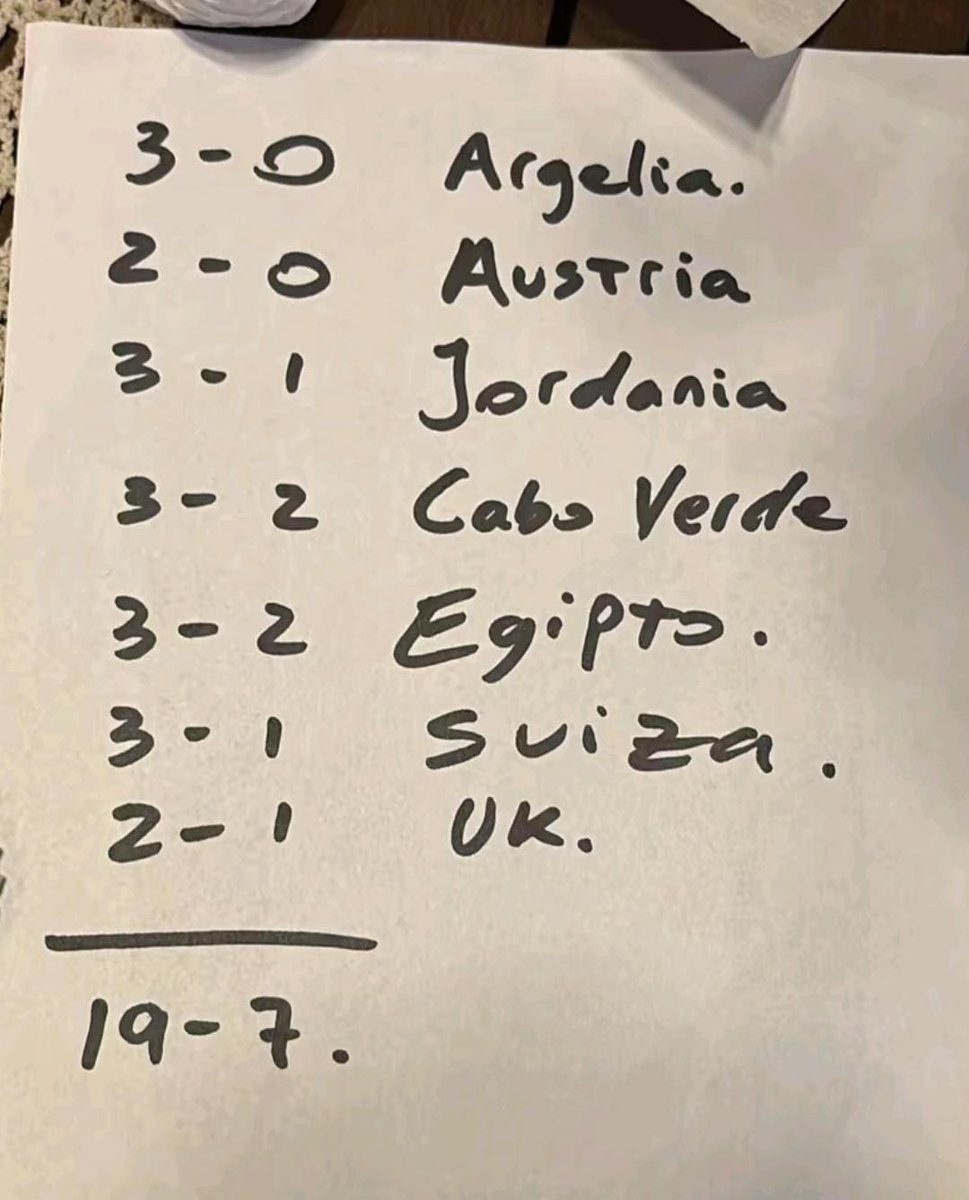 3 - 0 Argelia.
2 - 0 Austria
3 - 1 Jordania
3 - 2 Cabo Verde
3 - 2 Egipto.
3 - 1 Suiza.
2 - 1 UK.
19 - 7.